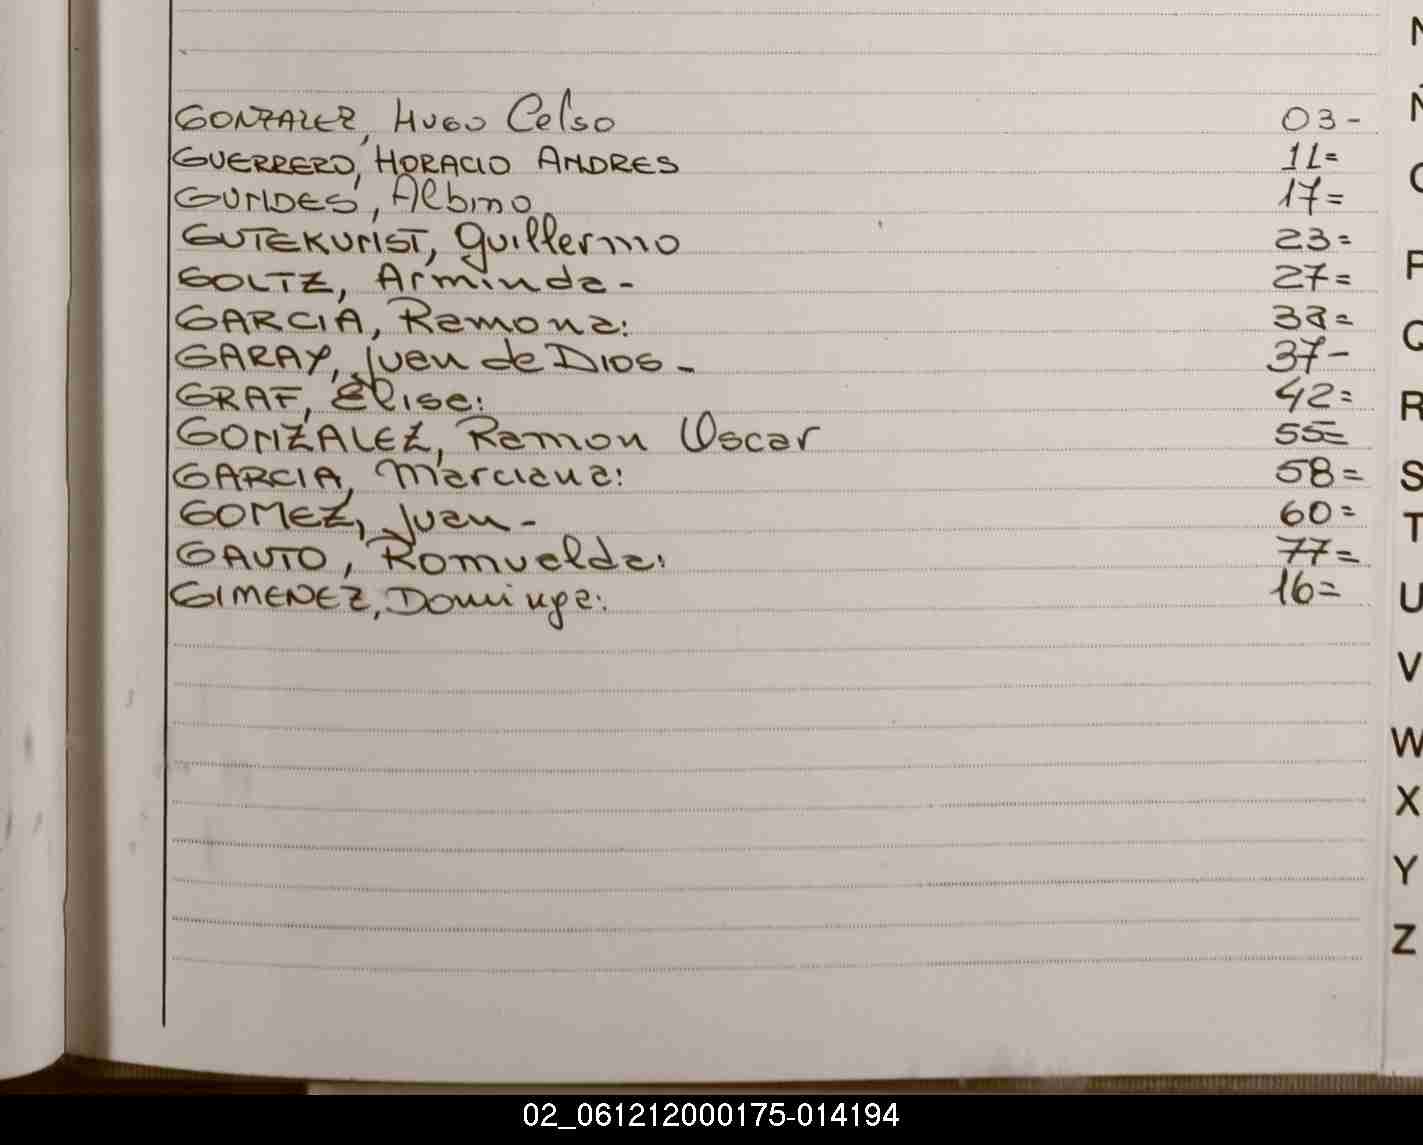 GONZALEZ, HUGO Celso 03-
GUERRERO, HORACIO ANDRES 11=
Albino 17=
GUTEKUNST, Guillermo 23=
GOLTZ, Arminda- 27=
GARCIA, Ramona:
GARAY, Juan de DIOS- 37-
GRAF, Elisa: 42=
GONZALEZ, Ramon Oscar 55=
GARCIA, Marciana: 58=
GOMEZ, Juan- 60=
GAUTO, Romualda: 77=
GIMENEZ, Dominga: 16=
Ñ
P
Q
R
S
T
U
V
W
X
Y
Z
02_061212000175-014194